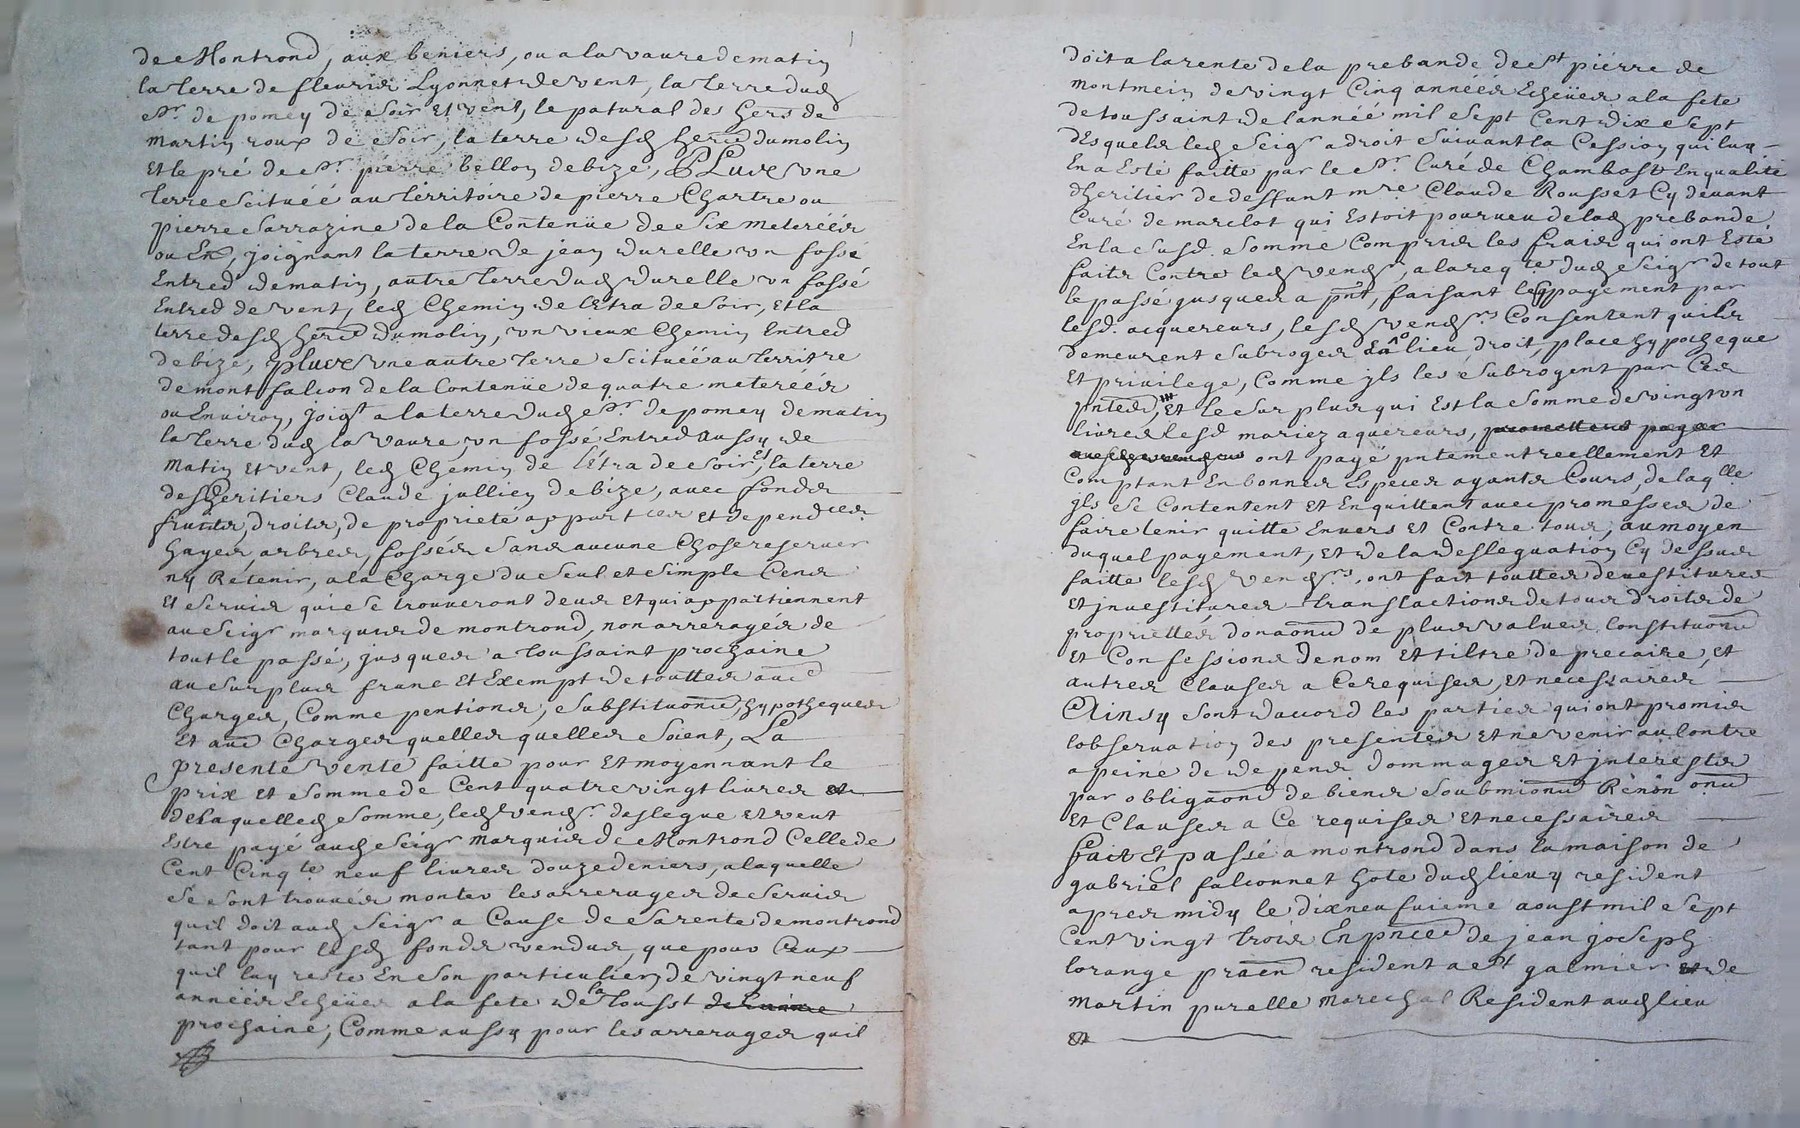 de Montrond, aux beniers, ou a la vaure de matin
la terre de fleurie Lyonnet de vent, la terre dud
Sr. de pomey de soir Et vent, le patural des hers de
martin roux de soir, la terre desd hers dumolin
Et le pré de Sr. pierre bellon de bize, Plus vne
terre scituéé au territoire de pierre Chartre ou
pierre sarrazine de la Contenüe de six meteréés
ou En, joignant la terre de jean durelle vn fossé
Entred de matin, autre terre dud durelle vn fossé
Entred de vent, led Chemin de l'Etra de soir, Et la
terre desd hers dumolin, vn vieux Chemin Entred
de bize, plus vne autre terre scituéé au territre
de mont falcon de la Contenüe de quatre meteréés
ou Enuiron, joigt a la terre dud Sr. de pomey de matin
la terre dud la vaure, vn fossé Entred aussy de
matin Et vent, led Chemin de l'Etra de soir, et la terre
des heritiers Claude jullien de bize, auec fonds
fruits, droits, de proprieté appartces Et dependces
hayes, arbres, fossés sans aucune Chose reseruer
ny Retenir, a la Charge du seul et simple Cens
Et seruis qui se trouueront deus Et qui appartiennent
au seigr marquis de montrond, non arrerages de
tout le passé, jusques a toussaint prochaine
au surplus franc Et Exempt de touttes aues
Charges, Comme pentions, substituons, hypotheques
Et aues Charges quelles quelles soient, La
presente vente faitte pour Et moyennant le
prix Et somme de Cent quatre vingt liures Et
de laquelled somme, led vendr. deslegue Et veut
Estre payé aud seigr marquis de Montrond Celle de
Cent Cinqte neuf liures douze deniers, a laquelle
se sont trouués monter les arrerages de seruis
quil doit aud seigr a Cause de sa rente de montrond
tant pour lesd fonds vendus, que pour Ceux
quil luy reste En son particulier, de vingt neuf
annéés Echeües a la fete de la tousst
prochaine, Comme aussy pour les arrerages quil
doit a la rente de la prebande de St pierre de
montmein de vingt Cinq annéés Echeües a la fete
de toussaint de l'annéé mil sept Cent dix sept
desquels led seigr a droit suivant la Cession qui luy
En a Esté faitte par le Sr. Curé de Chambost En qualité
dheritier de deffunt mre Claude Rousset Cy deuant
Curé de marclot qui Estoit pourueu de lad prebande
En la susd. somme Compris les frais qui ont Esté
faits Contre led vendr, a la reqte dud seigr de tout
le passé jusques a pnt, faisant led payement par
lesd. acquereurs, lesd vendrs Consentent quils
demeurent subroges En lieu, droit, place hypotheque
Et priuilege, Comme jls les subrogent par Ces
pntes, Et le surplus qui Est la somme de vingt vn
liures lesd mariez aquereurs, promettent payer
ont payé pntement reellement Et
Comptant En bonnes Especes ayants Cours, de laqlle
jls se Contentent Et En quittent auec promesse de
faire tenir quitte Enuers Et Contre tous, au moyen
duquel payement, Et de la desleguation Cy dessus
faitte lesd vendrs, ont fait touttes deuestitures
Et jnuestitures translactions de tous droits de
proprietter donaons de plus values Constituons
Et Confessions de nom Et tiltre de precaire, Et
autres Clauses a Ce requises, Et necessaires
Ainsy sont d'accord les parties qui ont promis
lobseruation des presentes Et ne venir au Contre
a peine de depens dommages Et jnterests
par obligaons de biens soubmions Renonons
Et Clauses a Ce requises Et necessaires
fait Et passé a montrond dans la maison de
gabriel falconnet hote dud lieu y resident
apres midy le dixneufuieme aoust mil sept
Cent vingt trois En pnce de jean joseph
lorange praen resident a St galmier de
martin purelle marechal Resident aud lieu
Et